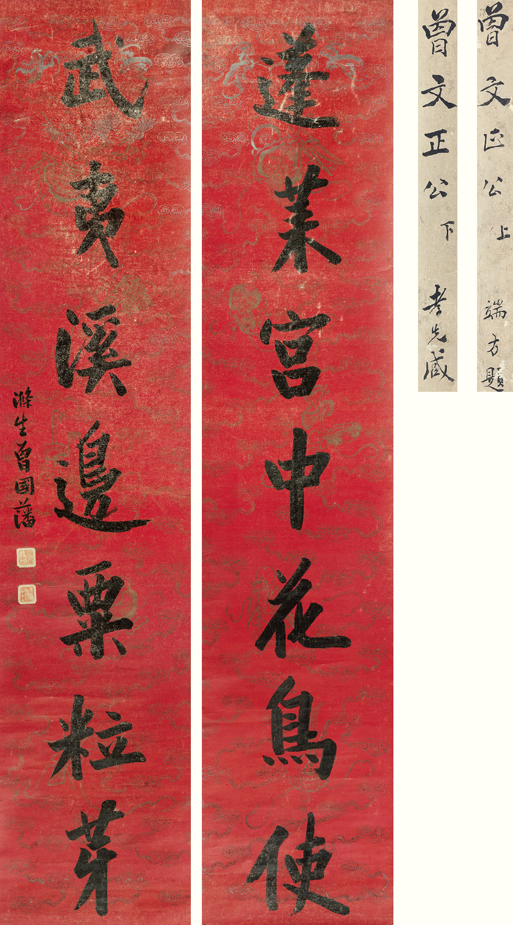 曾文正公上 端方题
曾文正公下 考先藏
蓬莱宫中花鳥使
武夷溪邊粟粒芽
滌生曾國藩